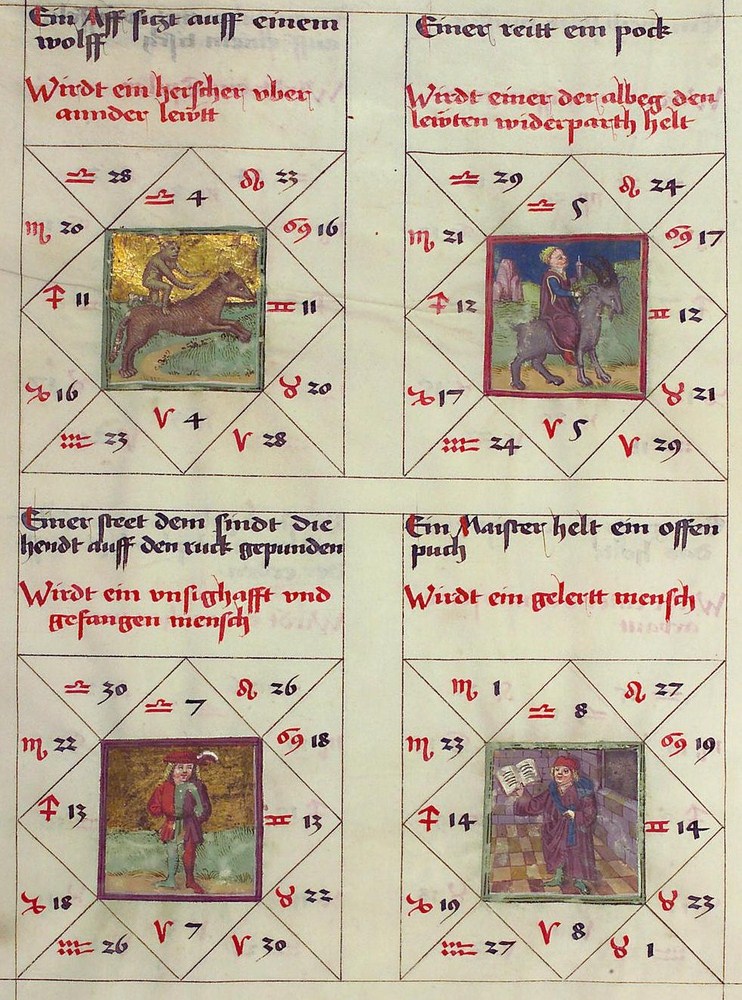 Ein Aff sitzt auff einem
wolff
Wirdt ein herscher vber
annder lewtt
♎ 28
♎ 4
♌ 23
♏ 20
♋ 16
♐ 11
♊ 11
♑ 16
♉ 20
♒ 23
♈ 4
♈ 28
Einer reitt ein pock
Wirdt einer der albeg den
lewten widerparth helt
♎ 29
♎ 5
♌ 24
♏ 21
♋ 17
♐ 12
♊ 12
♑ 17
♉ 21
♒ 24
♈ 5
♈ 29
Einer steet dem sindt die
hendt auff den ruck gepunden
Wirdt ein vnsighafft vnd
gefangen mensch
♎ 30
♎ 7
♌ 26
♏ 22
♋ 18
♐ 13
♊ 13
♑ 18
♉ 22
♒ 26
♈ 7
♈ 30
Ein Maister helt ein offen
puch
Wirdt ein gelertt mensch
♏ 1
♎ 8
♌ 27
♏ 23
♋ 19
♐ 14
♊ 14
♑ 19
♉ 23
♒ 27
♈ 8
♉ 1